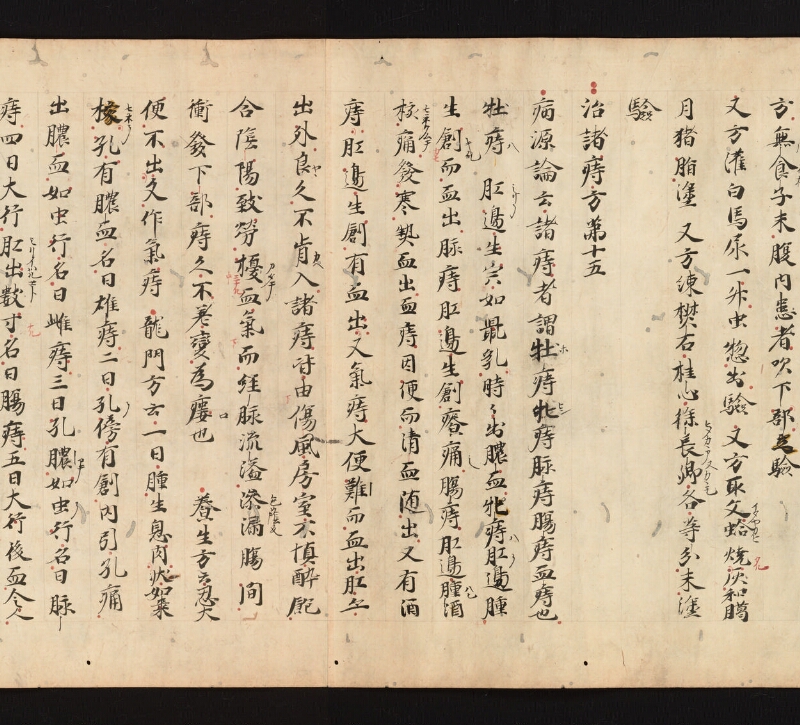 方無食子末腹内患者吹下部立驗
又方灌白馬尿一升虫惣出驗又方取文蛤燒灰和臈
月猪脂塗又方練礬石桂心徐長卿各等分末塗
驗
治諸痔方第十五
病源論云諸痔者謂牡痔牝痔脉痔腸痔血痔也
牡痔肛邊生宍如鼠乳時〻出膿血牝痔肛邊腫
生創而血出脉痔肛邊生創癢痛腸痔肛邊腫
核痛發寒熱血出血痔因便而清血随出又有酒
痔肛邊生創有血出又氣痔大便難而血出肛亦
出外良久不肯入諸痔皆由傷風房室不慎醉飽
合陰陽致勞擾血氣而經脉流溢滲漏腸間
衝發下部痔久不差變為瘻也養生方云忍大
便不出久作氣痔龍門方云一日腫生息肉状如棗
核孔有膿血名曰雄痔二曰孔傍有創内引孔痛
出膿血如虫行名曰雌痔三曰孔膿如虫行名曰脉
痔四曰大行肛出數寸名曰腸痔五曰大行後血令人